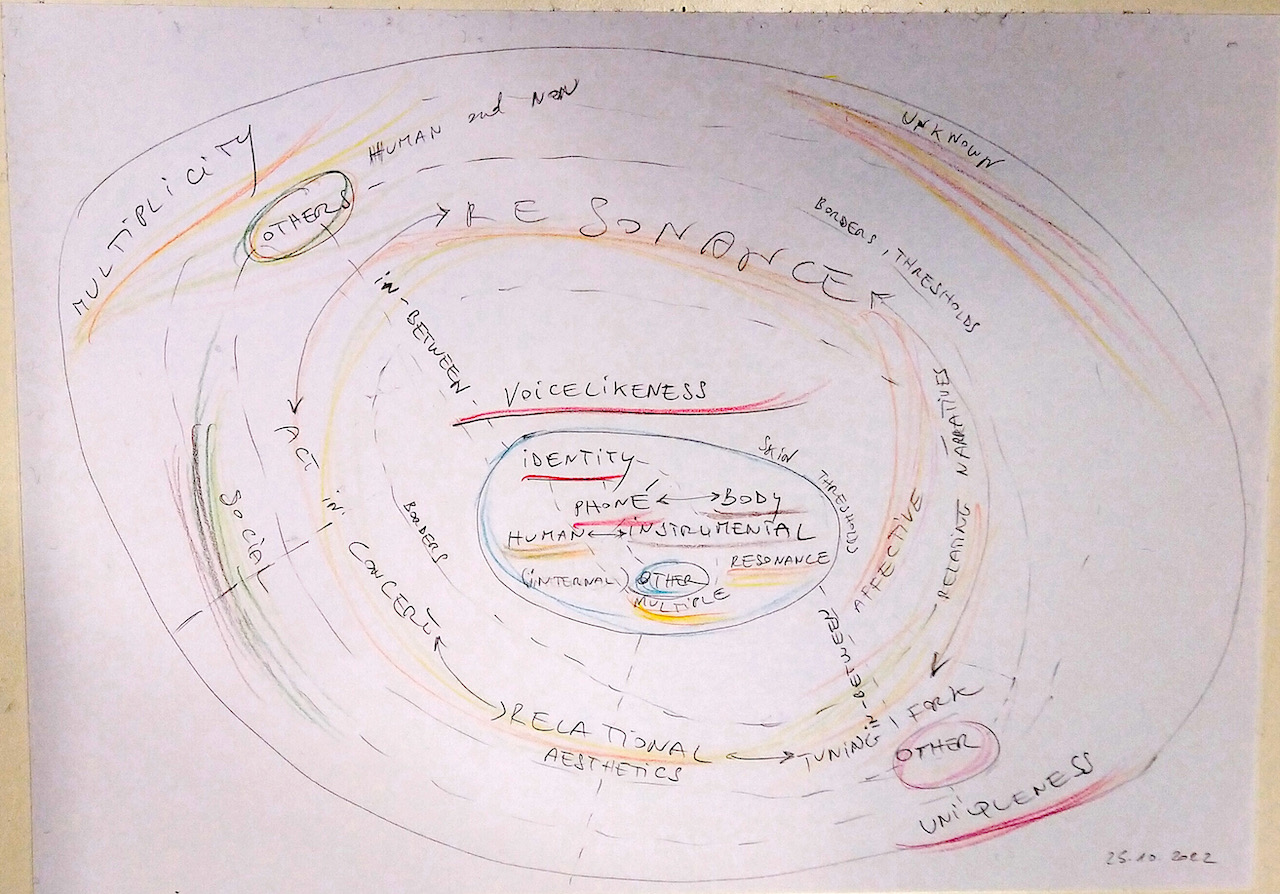 MULTIPLICITY
HUMAN and NON
UNKNOWN
OTHERS
RESONANCE
BORDERS, THRESHOLDS
IN-BETWEEN
VOICELIKENESS
SKIN THRESHOLDS
IDENTITY
PHONÉ ↔ BODY
HUMAN ↔ INSTRUMENTAL
RESONANCE
(INTERNAL) OTHER
MULTIPLE
ACT IN CONCERT
SOCIAL
BORDERS
AFFECTIVE
RELATING NARRATIVES
IN-BETWEEN
RELATIONAL
AESTHETICS
TUNING FORK
OTHER
UNIQUENESS
25.10.2022